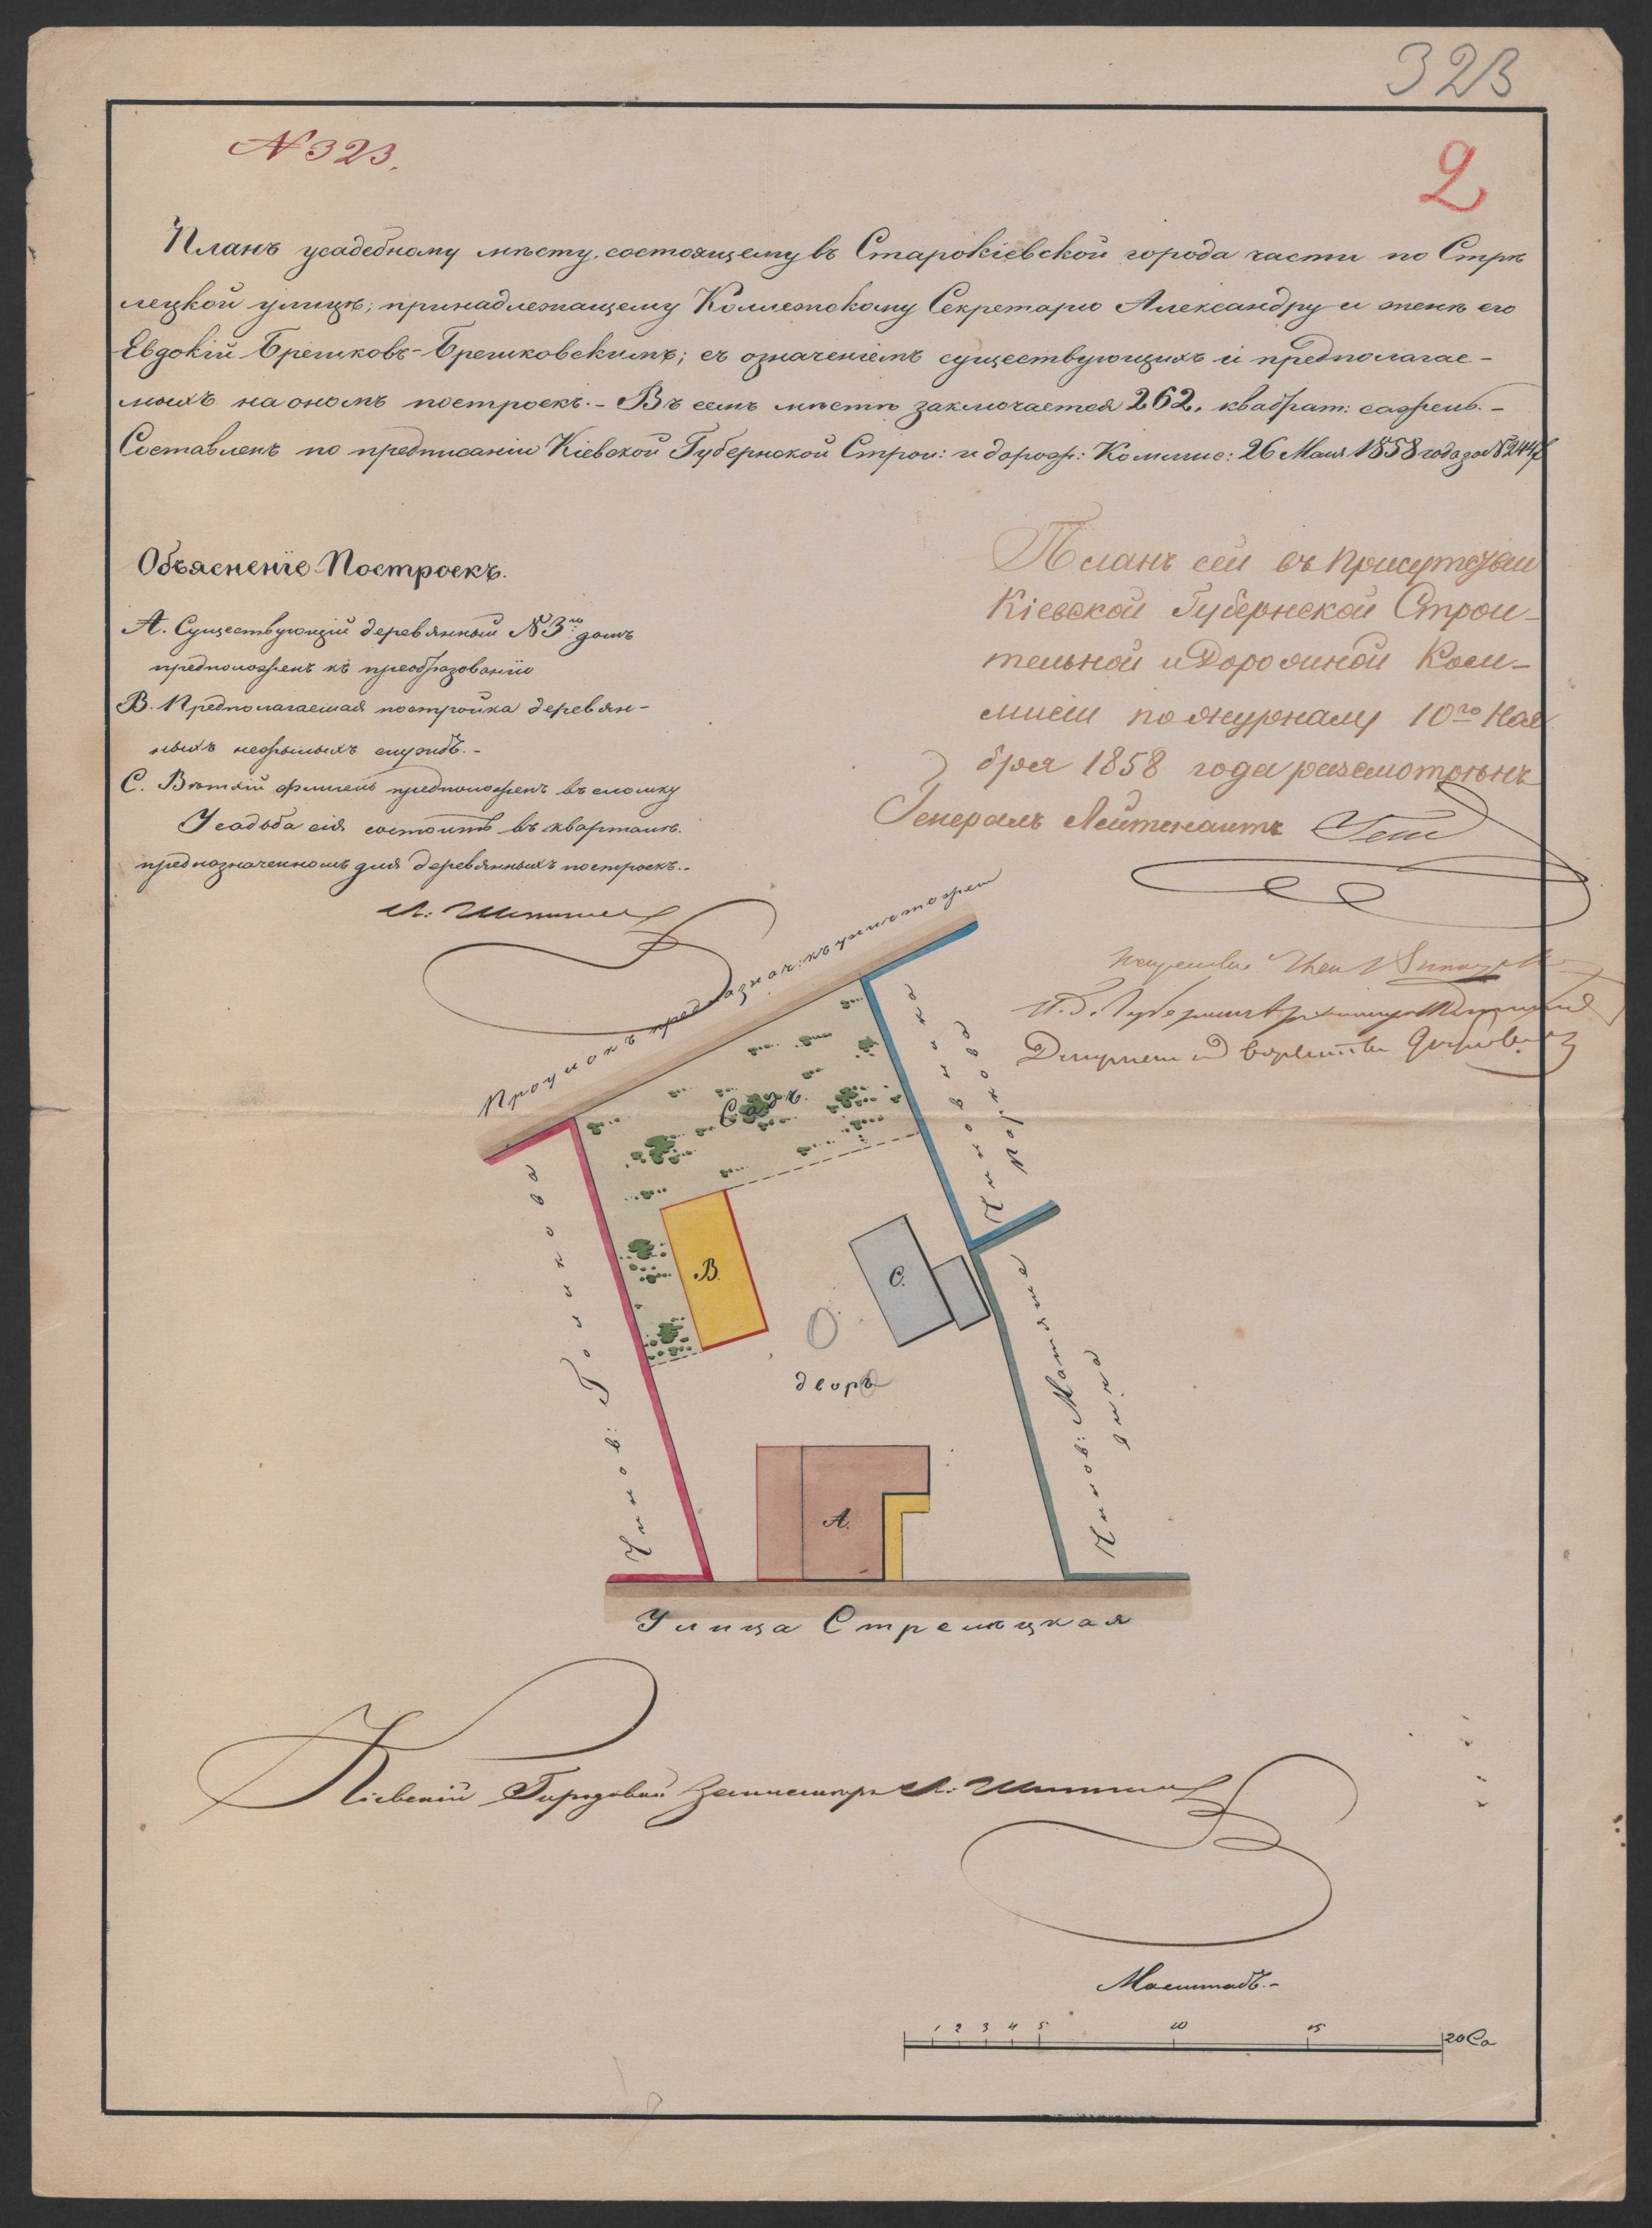 323
№ 323.
2
Планъ усадебному мѣсту, состоящему въ Старокіевской города части по Стрѣ
лецкой улицѣ; принадлежащему Коллежскому Секретарю Александру и женѣ его
Евдокіи Брешковъ-Брешковскимъ; съ означеніемъ существующихъ и предполагае-
мыхъ на ономъ построекъ. - Въ семъ мѣстѣ заключается 262. квадрат: сажень. -
Составленъ по предписанію Кіевской Губернской Строи: и дорож: Коммис: 26 Мая 1858 года за №
Объясненіе Построекъ.
А. Существующій деревянный №3го домъ
предположенъ къ преобразованію
В. Предполагаемая постройка деревян-
ныхъ нежилыхъ службъ. -
С. Вѣтхій флигель предположенъ въ сломку
Усадьба сія состоитъ въ кварталѣ.
предназначенномъ для деревянныхъ построекъ. -
Планъ сей въ Присутствіи
Кіевской Губернской Строи-
тельной и Дорожной Ком-
мисіи по журналу 10го Ноя
бря 1858 года разсмотрѣнъ
Генералъ Лейтенантъ
Проулокъ предназнач: къ уничтожен
Садъ.
Чинов: Голикова
Чиновника
В.
С.
дворъ
Чинов:
А.
Улица Стрелѣцкая
Кіевскій Городовой Землемѣръ
Масштабъ. -
1 2 3 4 5 10 15 20 Са